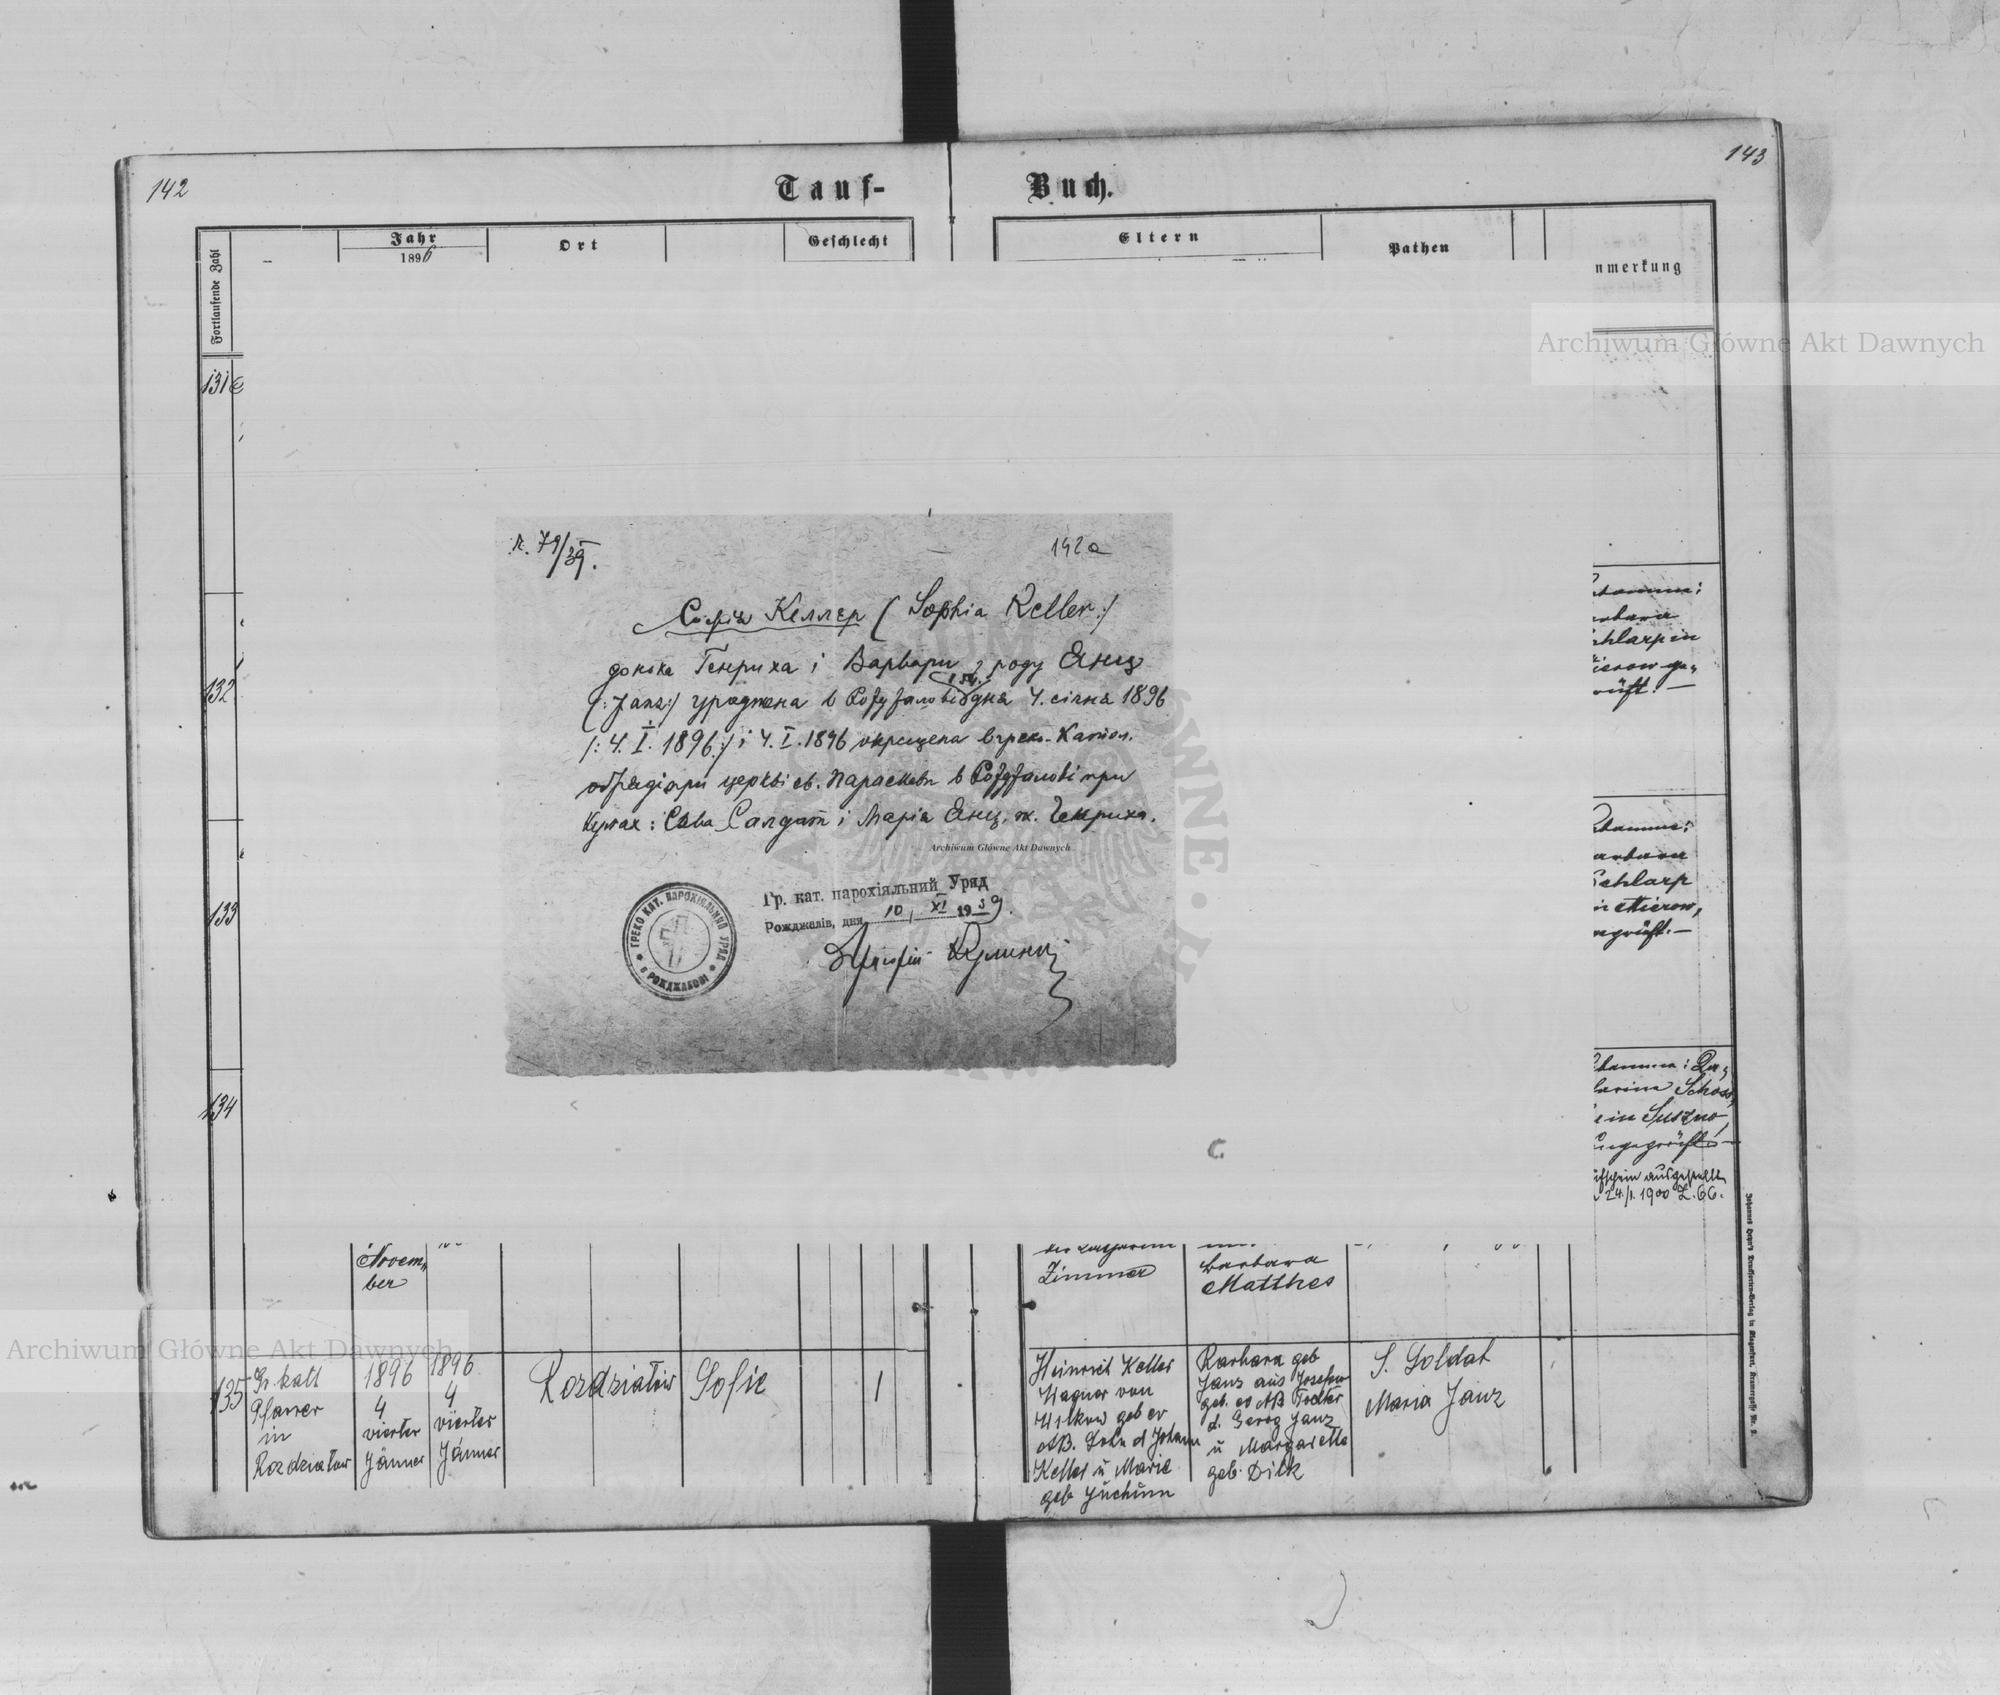 142
143
Tauf-
Buch.
Fortlaufende Zahl
Jahr
1896
Ort
Geschlecht
Eltern
Pathen
nmerkung
Archiwum Główne Akt Dawnych
131
132
133
134
79/39.
142a
Софія Келлер (Sophia Keller:/
донька Генриха і Варвари з роду Янц
(:Janz:/ уроджена в дня 4. січня 1896
/: 4. I. 1896:/ і 4. I. 1896 охрищена в греко-катол.
обряді при церкві св. Параскеви в при
Кумах: Сава Салдат і Марія Янц, ж. Генриха.
Archiwum Główne Akt Dawnych
Гр. кат. парохіяльний Уряд
Рожджалів, дня 10, XI 1939.
ГРЕКО КАТ. ПАРОХІЯЛЬНИЙ УРЯД
В РОЖДЖАЛОВІ
barbara
Schlarp
in Mierow,
in Suszno,
ausgestellt
24./1. 1900 Z. 66.
Novem„
ber
Zimmer
Barbara
Matthes
Archiwum Główne Akt Dawnych
135
Gr. katt
Pfarrer
in
Rozdziałow
1896
4
vierter
Jänner
1896
4
vierter
Jänner
Rozdziałow
Sofie
1
Heinrich Keller
Wagner von
geb ev
AB. Sohn d Johann
Keller u Marie
geb Juchum
Barbara geb
Janz aus Josefow
geb. ev AB Tochter
d. Georg Janz
u Margarethe
geb. Dilk
S. Soldat
Maria Janz